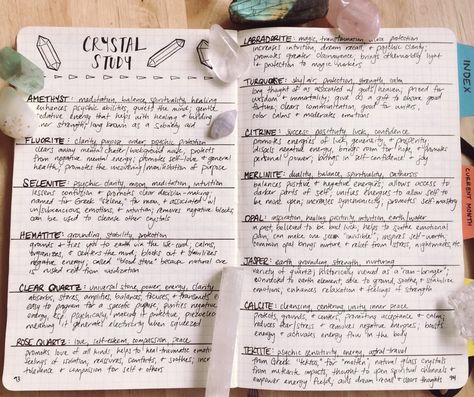 CRYSTAL
STUDY
AMETHYST: meditation, balance, spirituality, healing
enhances psychic abilities, quiets the mind; gentle
sedative energy that helps with healing &
inner strength; long known as a sobriety aid
FLUORITE: clarity, purpose, order, psychic protection
clears away mental chatter/background noise; protects
from negative mental energy; promotes self-love & general
health; promotes the manifestation of purpose
SELENITE: psychic clarity, moon, meditation, intuition
lessens confusion & promotes clear decision-making
named for Greek "selene," for moon, & associated w/
unconscious, emotions, & intuition; removes negative blocks
can be used to cleanse other crystals
HEMATITE: grounding, stability, protection
grounds & ties you to earth via the; calms,
organizes, & centers the mind; blocks out & stabilizes
negative energy; called "blood stone" because natural ore
is rusted red from oxidation
CLEAR QUARTZ: universal stone, power, energy, clarity
absorbs, stores, amplifies, balances, focuses, & transmits
easy to program for a specific purpose; purifies negative
energy, psychically; making it protective, piezoelectric
meaning it generates electricity when squeezed
ROSE QUARTZ: love, self-esteem, compassion, peace
promotes love of all kinds, helps to heal traumatic
feelings of isolation, pressures, comforts, & soothes; inc
tolerance & compassion for self & others
93
LABRADORITE: magic, transformation, protection
increases intuition, dream recall, & psychic clarity;
promotes greater clairvoyance, brings otherworldly light
& protection to magic workers
TURQUOISE: sky/air, protection, strength, calm
long thought of as associated w/ gods/heaven; prized for
wisdom & immortality; give as a gift to ensure good
fortune; clears communication, good for writers;
color calms & moderates emotions
CITRINE: success, positivity, luck, confidence
promotes energies of luck, generosity, & prosperity;
dispels negative energy, lends room for hope, &
personal power; brings in self-confidence & joy
MERLINITE: duality, balance, spirituality, catharsis
balances positive & negative energies; allows access to
darker parts of self; unites energies to allow self to
be more open; increases synchronicity; promotes self-mastery
OPAL: inspiration, healing, positivity, intuition, earth/water
once believed to be bad luck; helps to soothe emotional
pain; can make one seem "invisible"; mirrors self-worth
common opal brings nurture & relief from stress, nightmares, etc.
JASPER: earth, grounding, strength, nurturing
variety of quartz; historically viewed as a "rain-bringer";
connected to earth element; able to ground, soothe, & stabilize
emotions; enhances relaxation & feelings of strength
CALCITE: cleansing, centering, unity, inner peace
protects, grounds, & centers; promoting acceptance & calm;
reduces stress & removes negative energies; boosts
energy & activates energy flow in the body
TEKTITE: psychic sensitivity, energy, astral-travel
from Greek "tektos," for "molten"; natural glass crystals
from meteoric impacts; thought to open spiritual channels &
empower energy fields; aids dream recall & thoughts
94
INDEX
CURRENT MONTH